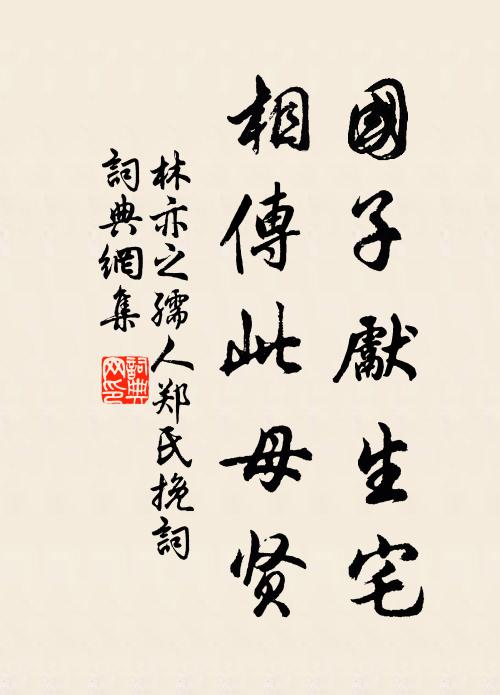 國子獻生宅
相傳此母贤
林亦之孺人郑氏挽詞
詞典網集
詞典網印